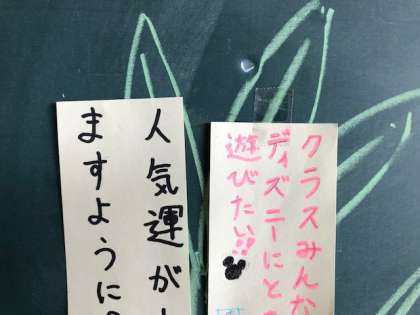 クラスみんな
ディズニーにと
遊びたい!!
人気運が
ますように